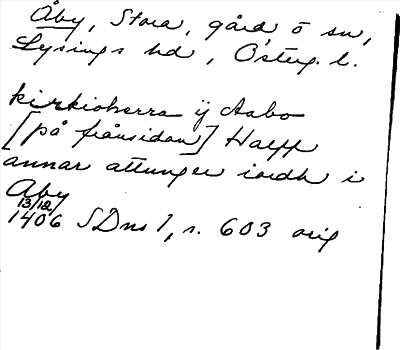 Åby, Stora, gård ö sn,
Lysings hd, Österg. l.
kirkioherra ij Aabo
[på frånsidan] Halff
annar attunger iordh i
Aby
13/12
1406 SDns 1, s. 603 orig